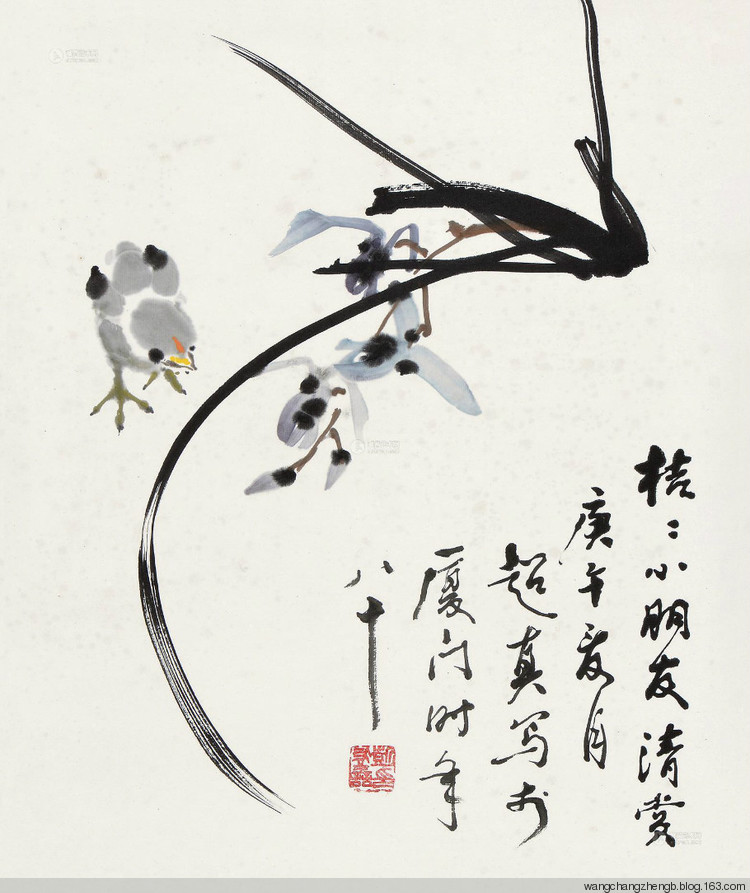 桔々小朋友清赏
庚午夏月
超真写于
厦门时年
八十
wangchangzhengb.blog.163.com